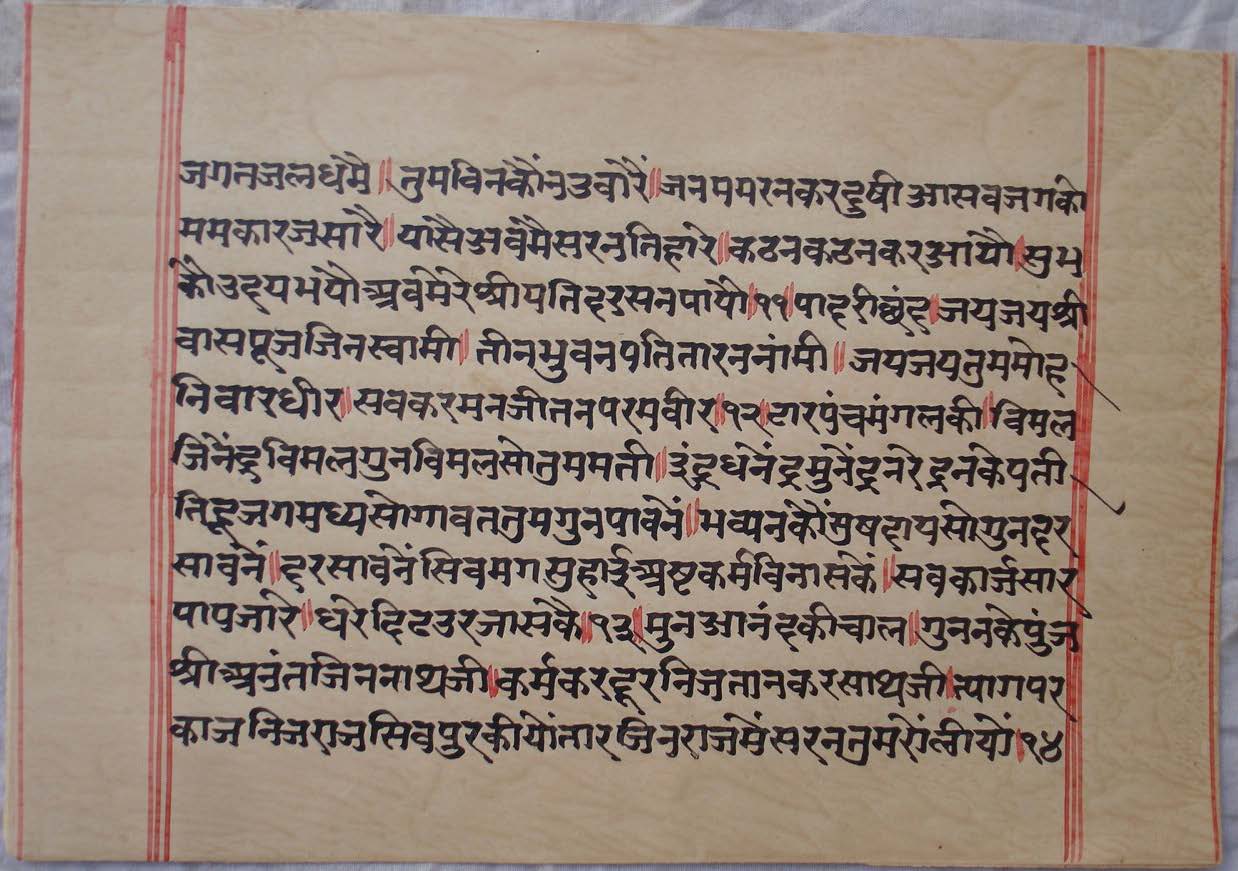 जगतजलधिमै ॥ तुमविनकौंनउवारैं ॥ जनममरनकरदुषी आसवजगकौ
ममकारजसारै ॥ यासैअवमैसरनतिहारे ॥ कठनकठनकरआयौ ॥ सुभ
कौउदयभयौअवमेरेश्रीपतिदरसनपायौ ॥ ११ ॥ पाहरीछंद ॥ जयजयश्री
वासपूजजिनस्वामी ॥ तीनभुवनपतितारननांमी ॥ जयजयतुममोह
निवारधीर ॥ सवकरमनजीतनपरमवीर ॥ १२ ॥ ढारपंचमंगलकी ॥ विमल
जिनेंद्रविमलगुनविमलसोतुममती ॥ इंद्रधनेंद्रमुनेंद्रनरेंद्रनकेपती
तिहूजगमध्यसोगावततुमगुनपावनें ॥ भव्यनकौंसुषदायसोगुनदर
सावनें ॥ दरसावनेंसिवमगसुहाईअष्टकर्मविनासकें ॥ सवकार्जसार
पापजारे ॥ धरेहिढउरजासकै ॥ १३ ॥ मुनआनंदकीचाल ॥ गुननकेपुंज
श्रीअनंतजिननाथजी ॥ कर्मकरदूरनिजतानकरसाथजी ॥ त्यागपर
काजनिजराजसिवपुरकीयोंतारजिनराजमेंसरनतुमरोंलीयों ॥ १४